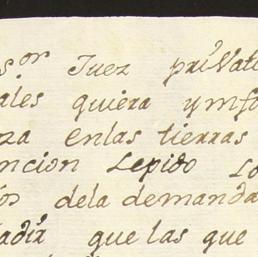 s.or Juez privati
ales quiera ymfo
za enlas tierras
ncion Lepido Lo
os dela demanda
adir que las que